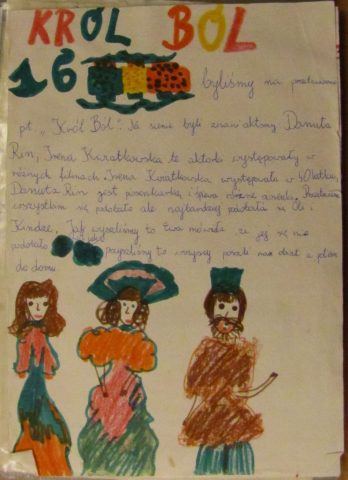 KRÓL BÓL
16 byliśmy na przedstawieniu
pt. „Król Ból". Na scenie byli znani aktorzy Danuta
Rin, Irena Kwiatkowska te aktorki występowały w
różnych filmach Irena Kwiatkowska występowała w 40latku,
Danuta Rin jest piosenkarką i śpiewa różne
wszystkim się podobało ale najbardziej Oli i
Kindze. Jak wyszliśmy to Ewa mówiła że jej się nie
podobało jak przyszliśmy to wszyscy poszli na obiad a potem
do domu.